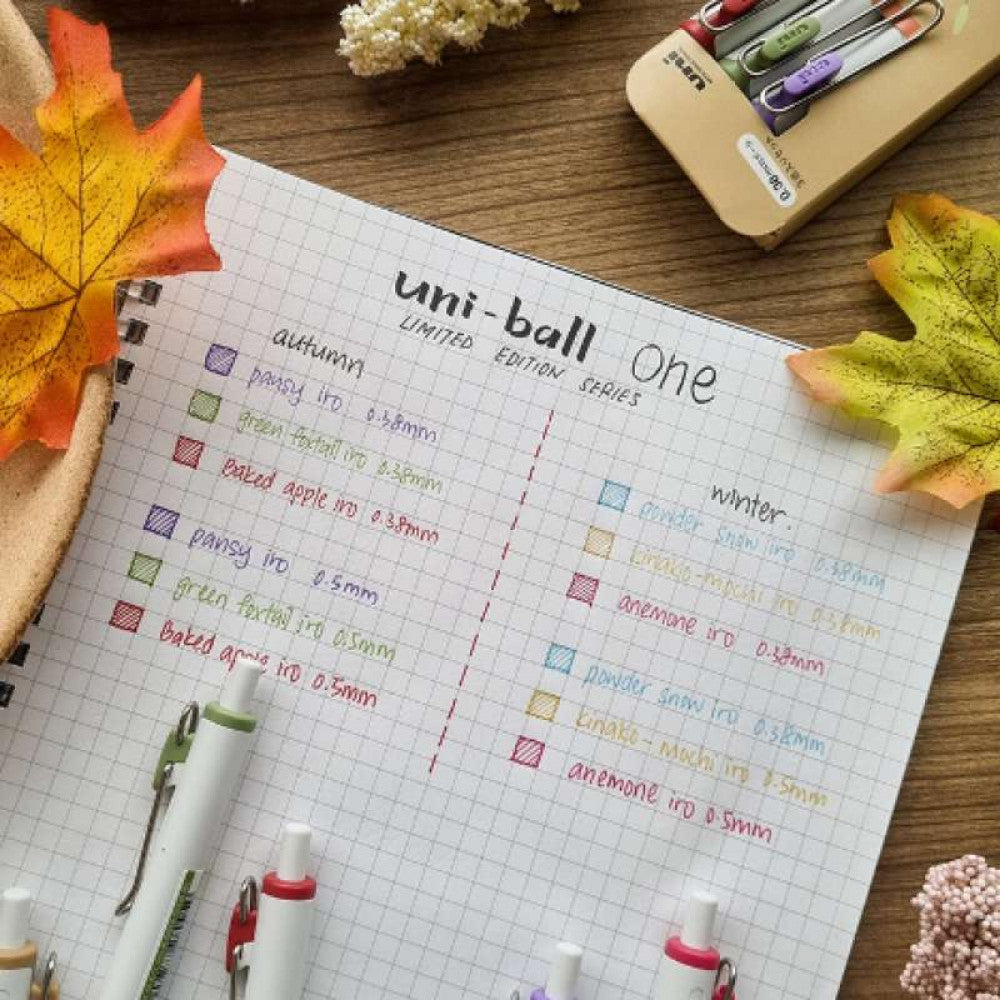 uni
0.38
uni-ball One
LIMITED EDITION SERIES
autumn
pansy iro 0.38mm
green foxtail iro 0.38mm
Baked apple iro 0.38mm
pansy iro 0.5mm
green foxtail iro 0.5mm
Baked apple iro 0.5mm
winter.
powder snow iro 0.38mm
kinako-mochi iro 0.38mm
anemone iro 0.38mm
powder snow iro 0.38mm
kinako-mochi iro 0.5mm
anemone iro 0.5mm